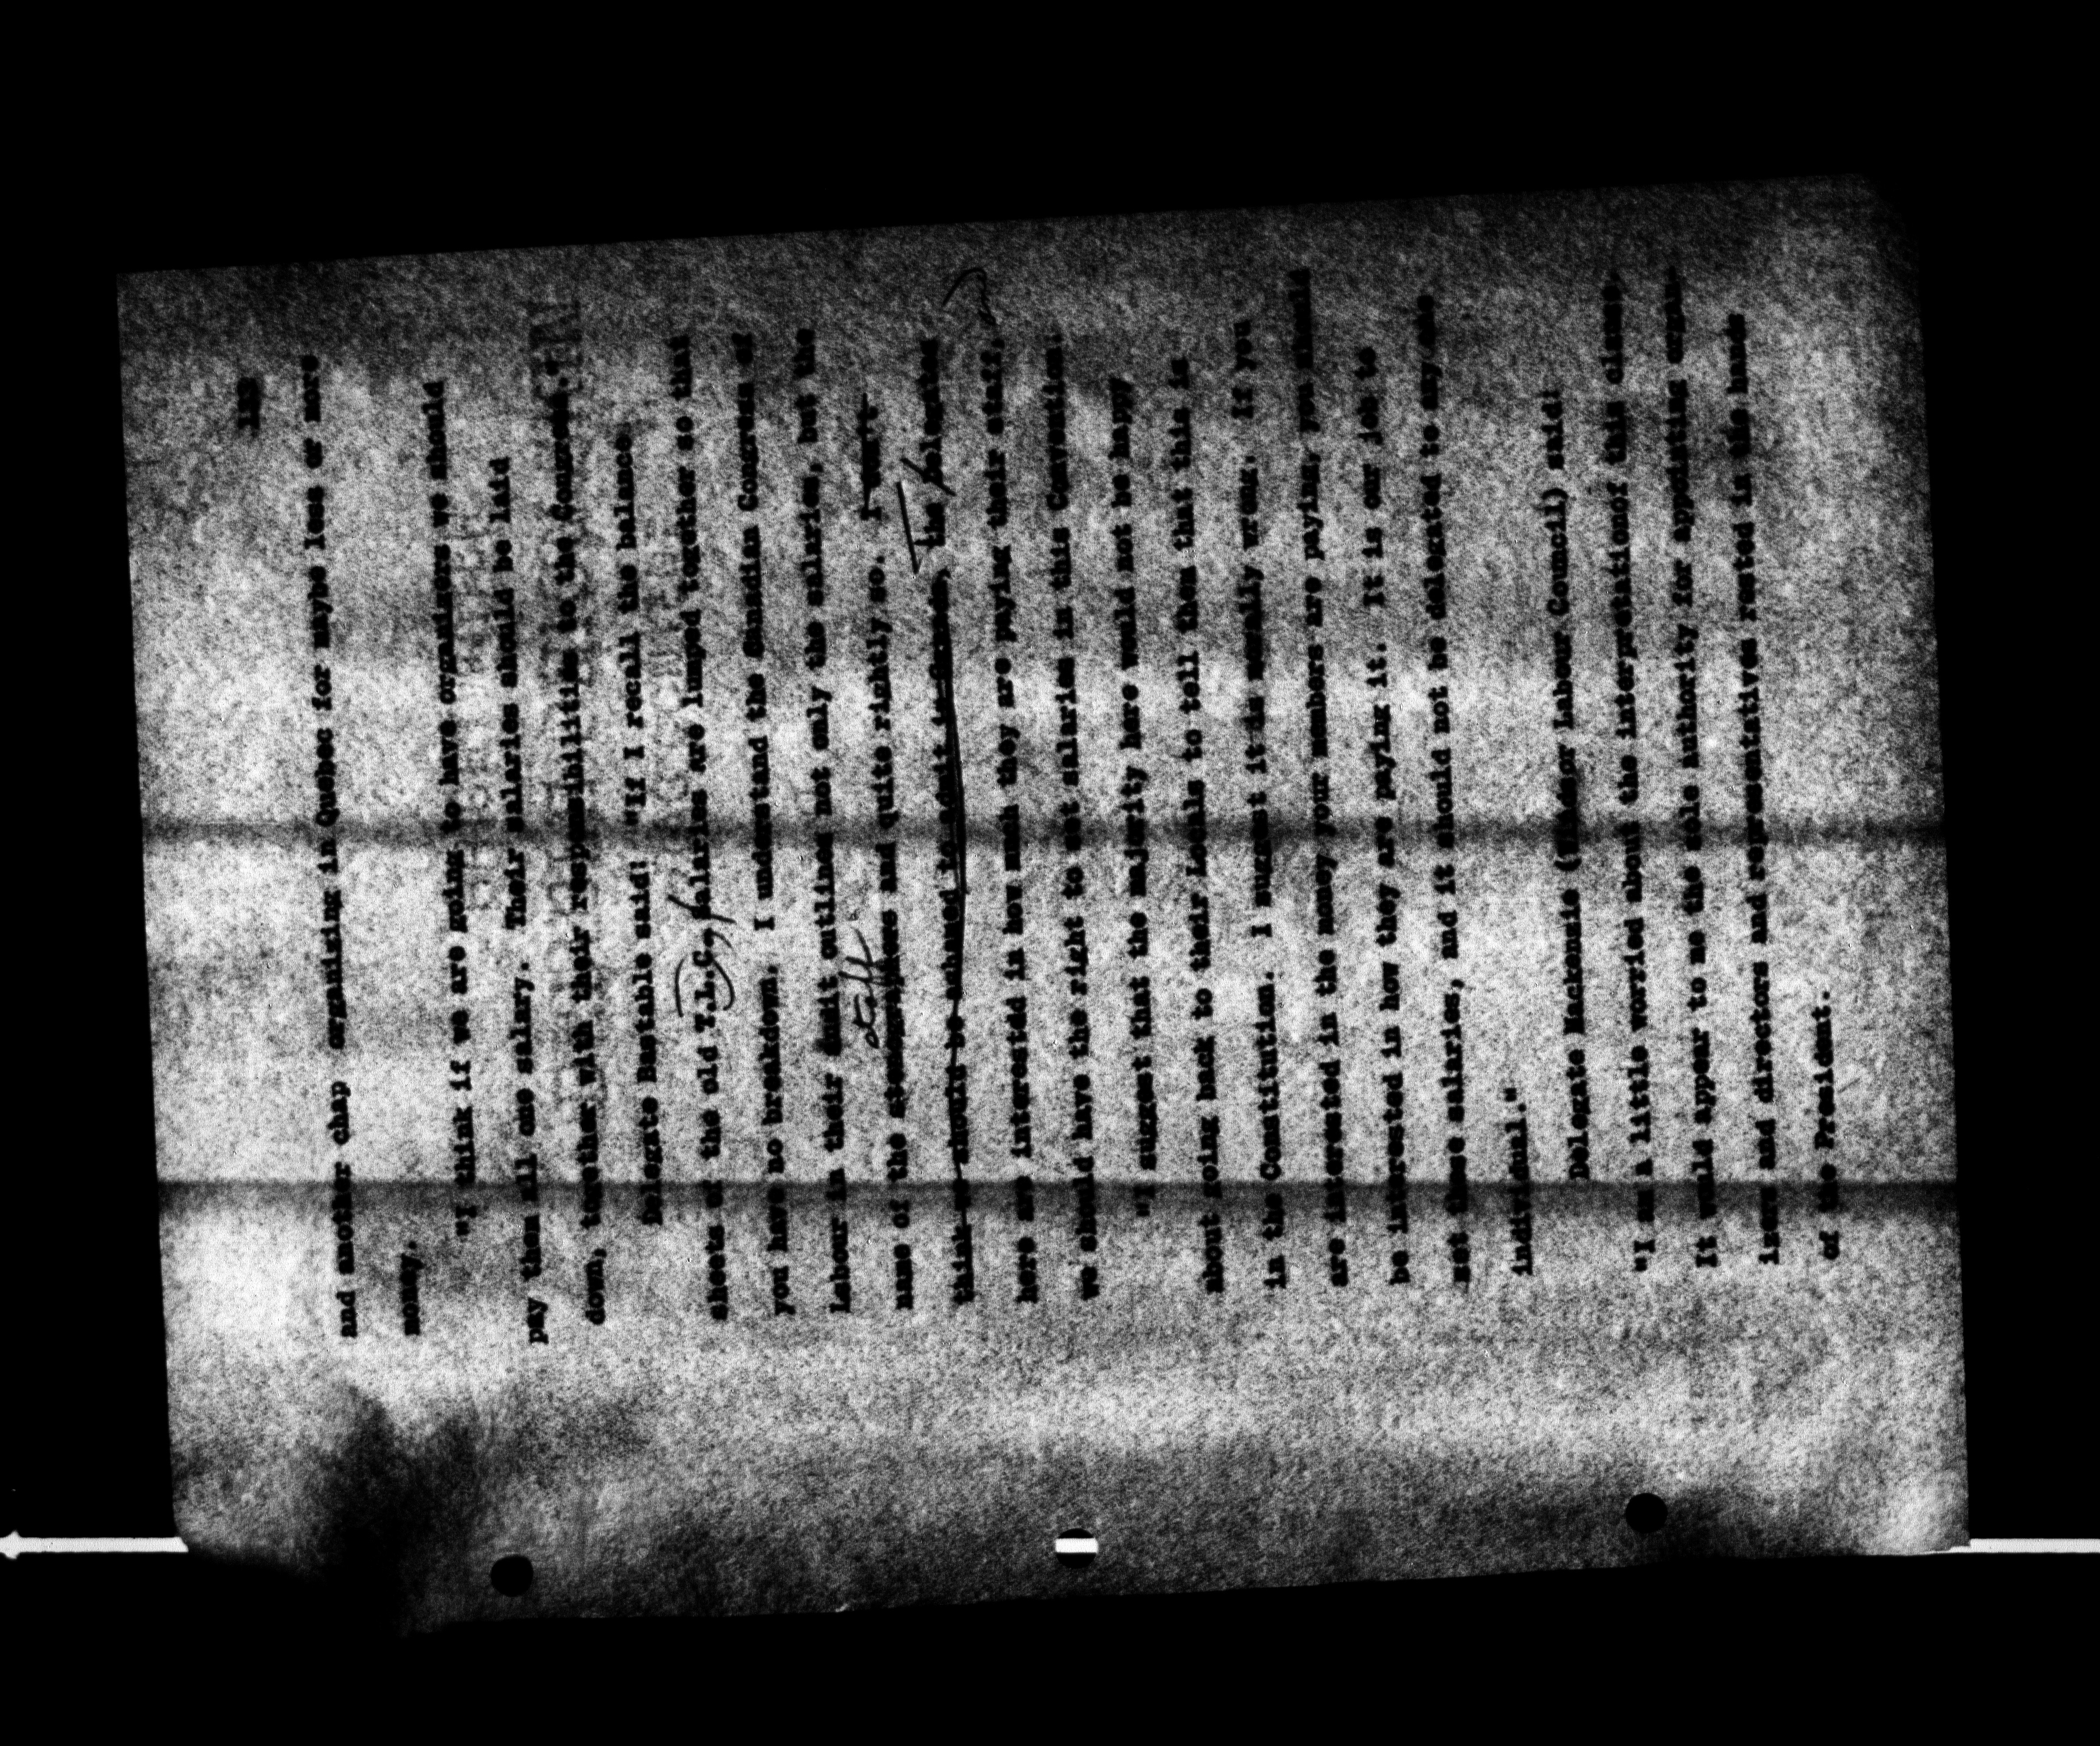 and another chap organizing in Quebec for maybe less or more
money.
"I think if we are going to have organizers we should
pay them all one salary. Their salaries should be laid
down, together with their responsibilities to the Congress."
Delegate Bastable said: "If I recall the balance
sheets of the old T.L.C., salaries are lumped together so that
you have no breakdown. I understand the Canadian Congress of
Labour in their audit outlined not only the salaries, but the
name of the stenographers and quite rightly so. I
staff
think should be to The delegates
here are interested in how much they are paying their staff,
we should have the right to set salaries in this Convention.
"I suggest that the majority here would not be happy
about going back to their Locals to tell them that this is
in the Constitution. I suggest it is morally wrong. If you
are interested in the money your members are paying, you should
be interested in how they are paying it. It is our job to
set these salaries, and it should not be delegated to any one
individual."
Delegate Mackenzie ( Labour Council) said:
"I am a little worried about the interpretationof this clause.
It would appear to me the sole authority for appointing organ-
izers and directors and representatives rested in the hands
of the President.